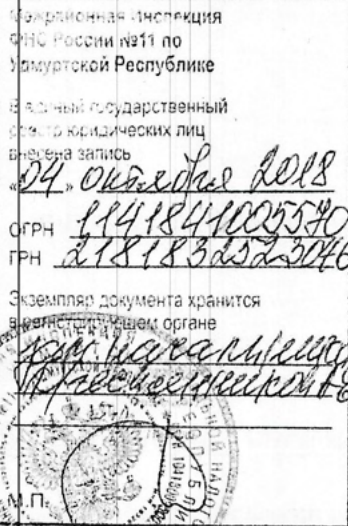 Межрайонная Инспекция
ФНС России №11 по
Удмуртской Республике
В единый государственный
реестр юридических лиц
внесена запись
«04» октября 2018
ОГРН 1141841005570
ГРН 2181832523046
Экземпляр документа хранится
в регистрирующем органе
зам. начальника
М.П.